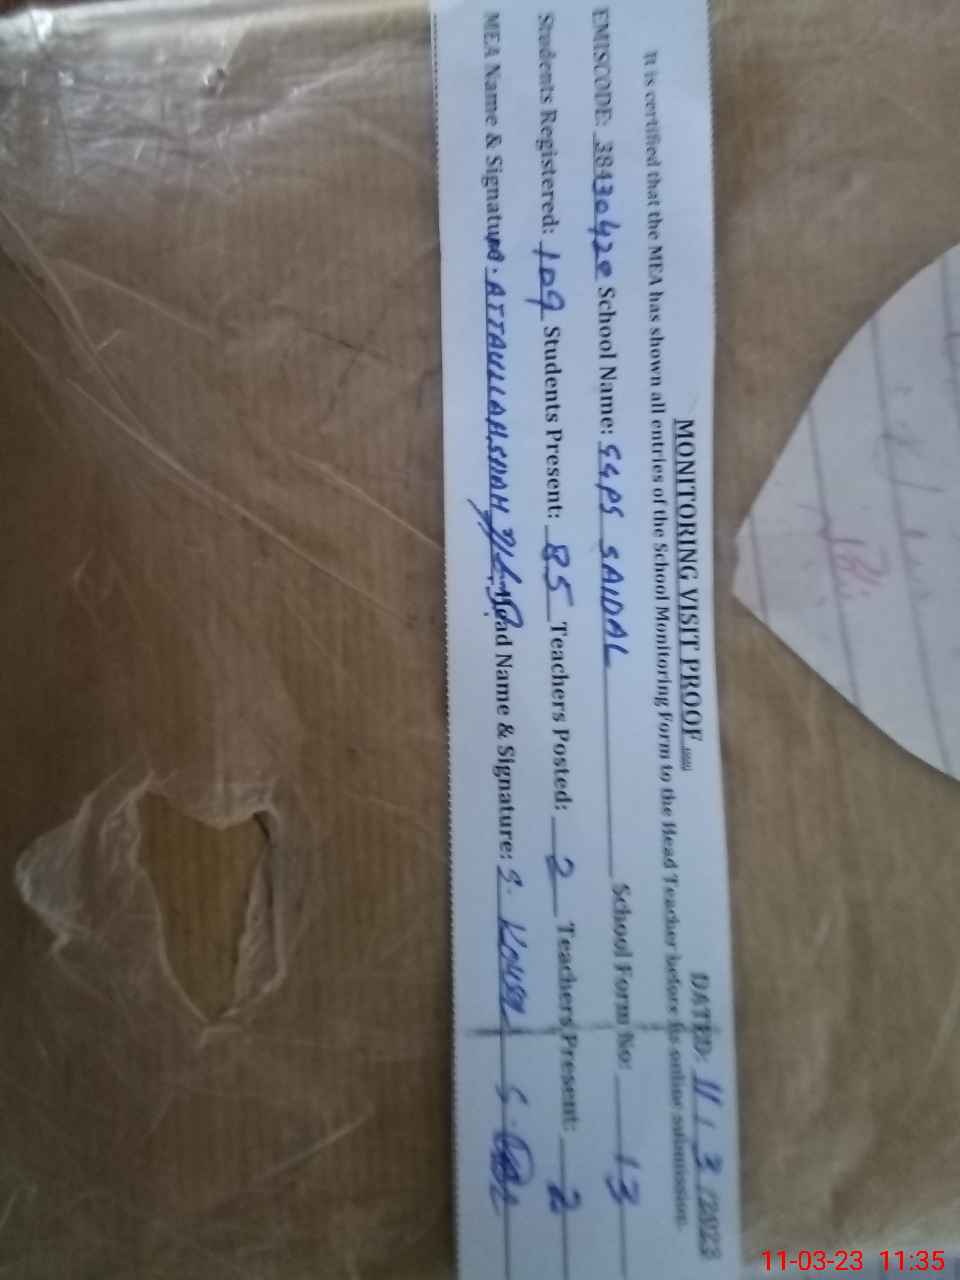 MONITORING VISIT PROOF
DATED: 11 / 3 /2023
It is certified that the MEA has shown all entries of the School Monitoring Form to the Head Teacher before its online submission.
EMISCODE: 38430420 School Name: GGPS SAIDAL School Form No: 13
Students Registered: 109 Students Present: 85 Teachers Posted: 2 Teachers Present: 2
MEA Name & Signature: ATTAULLAH SHAH Head Name & Signature: S.
11-03-23 11:35